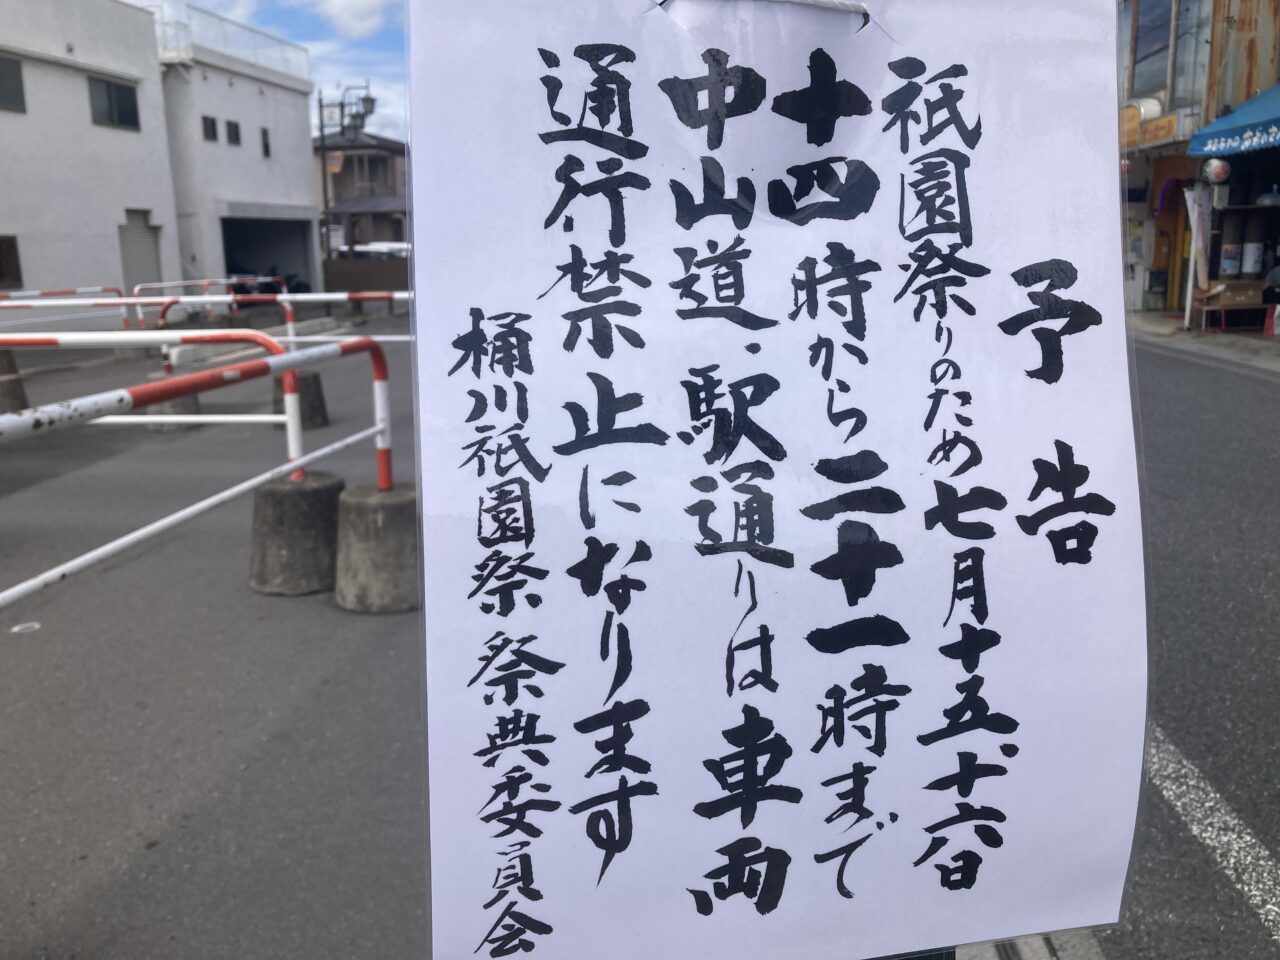 予告
祇園祭りのため七月十五、十六日
十四時から二十一時まで
中山道、駅通りは車両
通行禁止になります
桶川祇園祭 祭典委員会